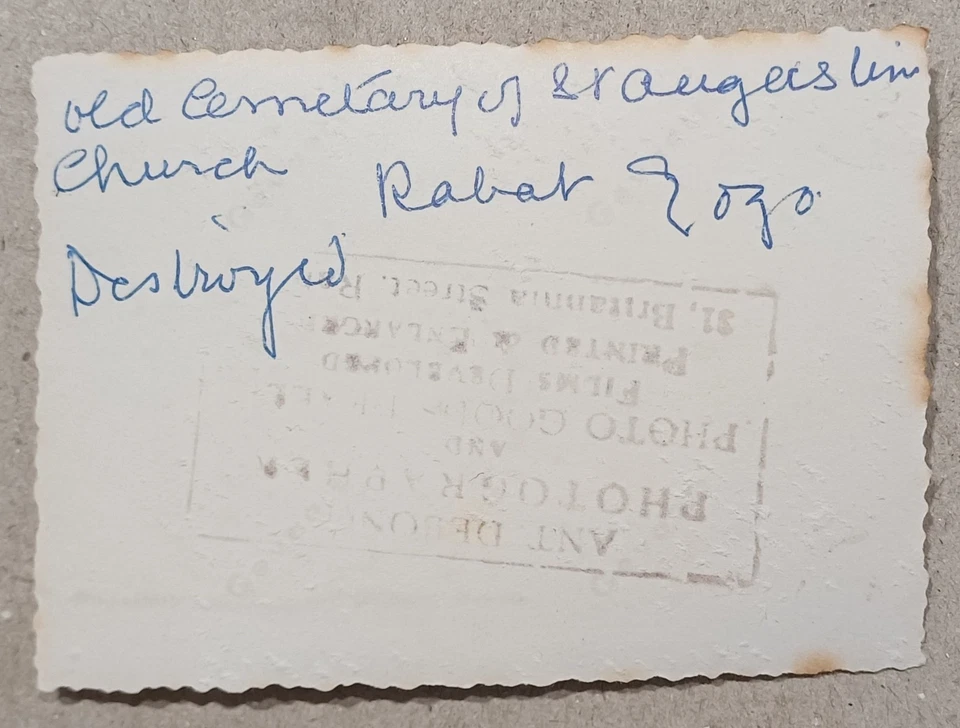 old Cemetary of St Augustin
Church Rabat Gozo
Destroyed
ANT DEBONO
PHOTOGRAPHER
AND
PHOTO GOODS DEALER
FILMS DEVELOPED
PRINTED & ENLARGED
31, Britannia Street,